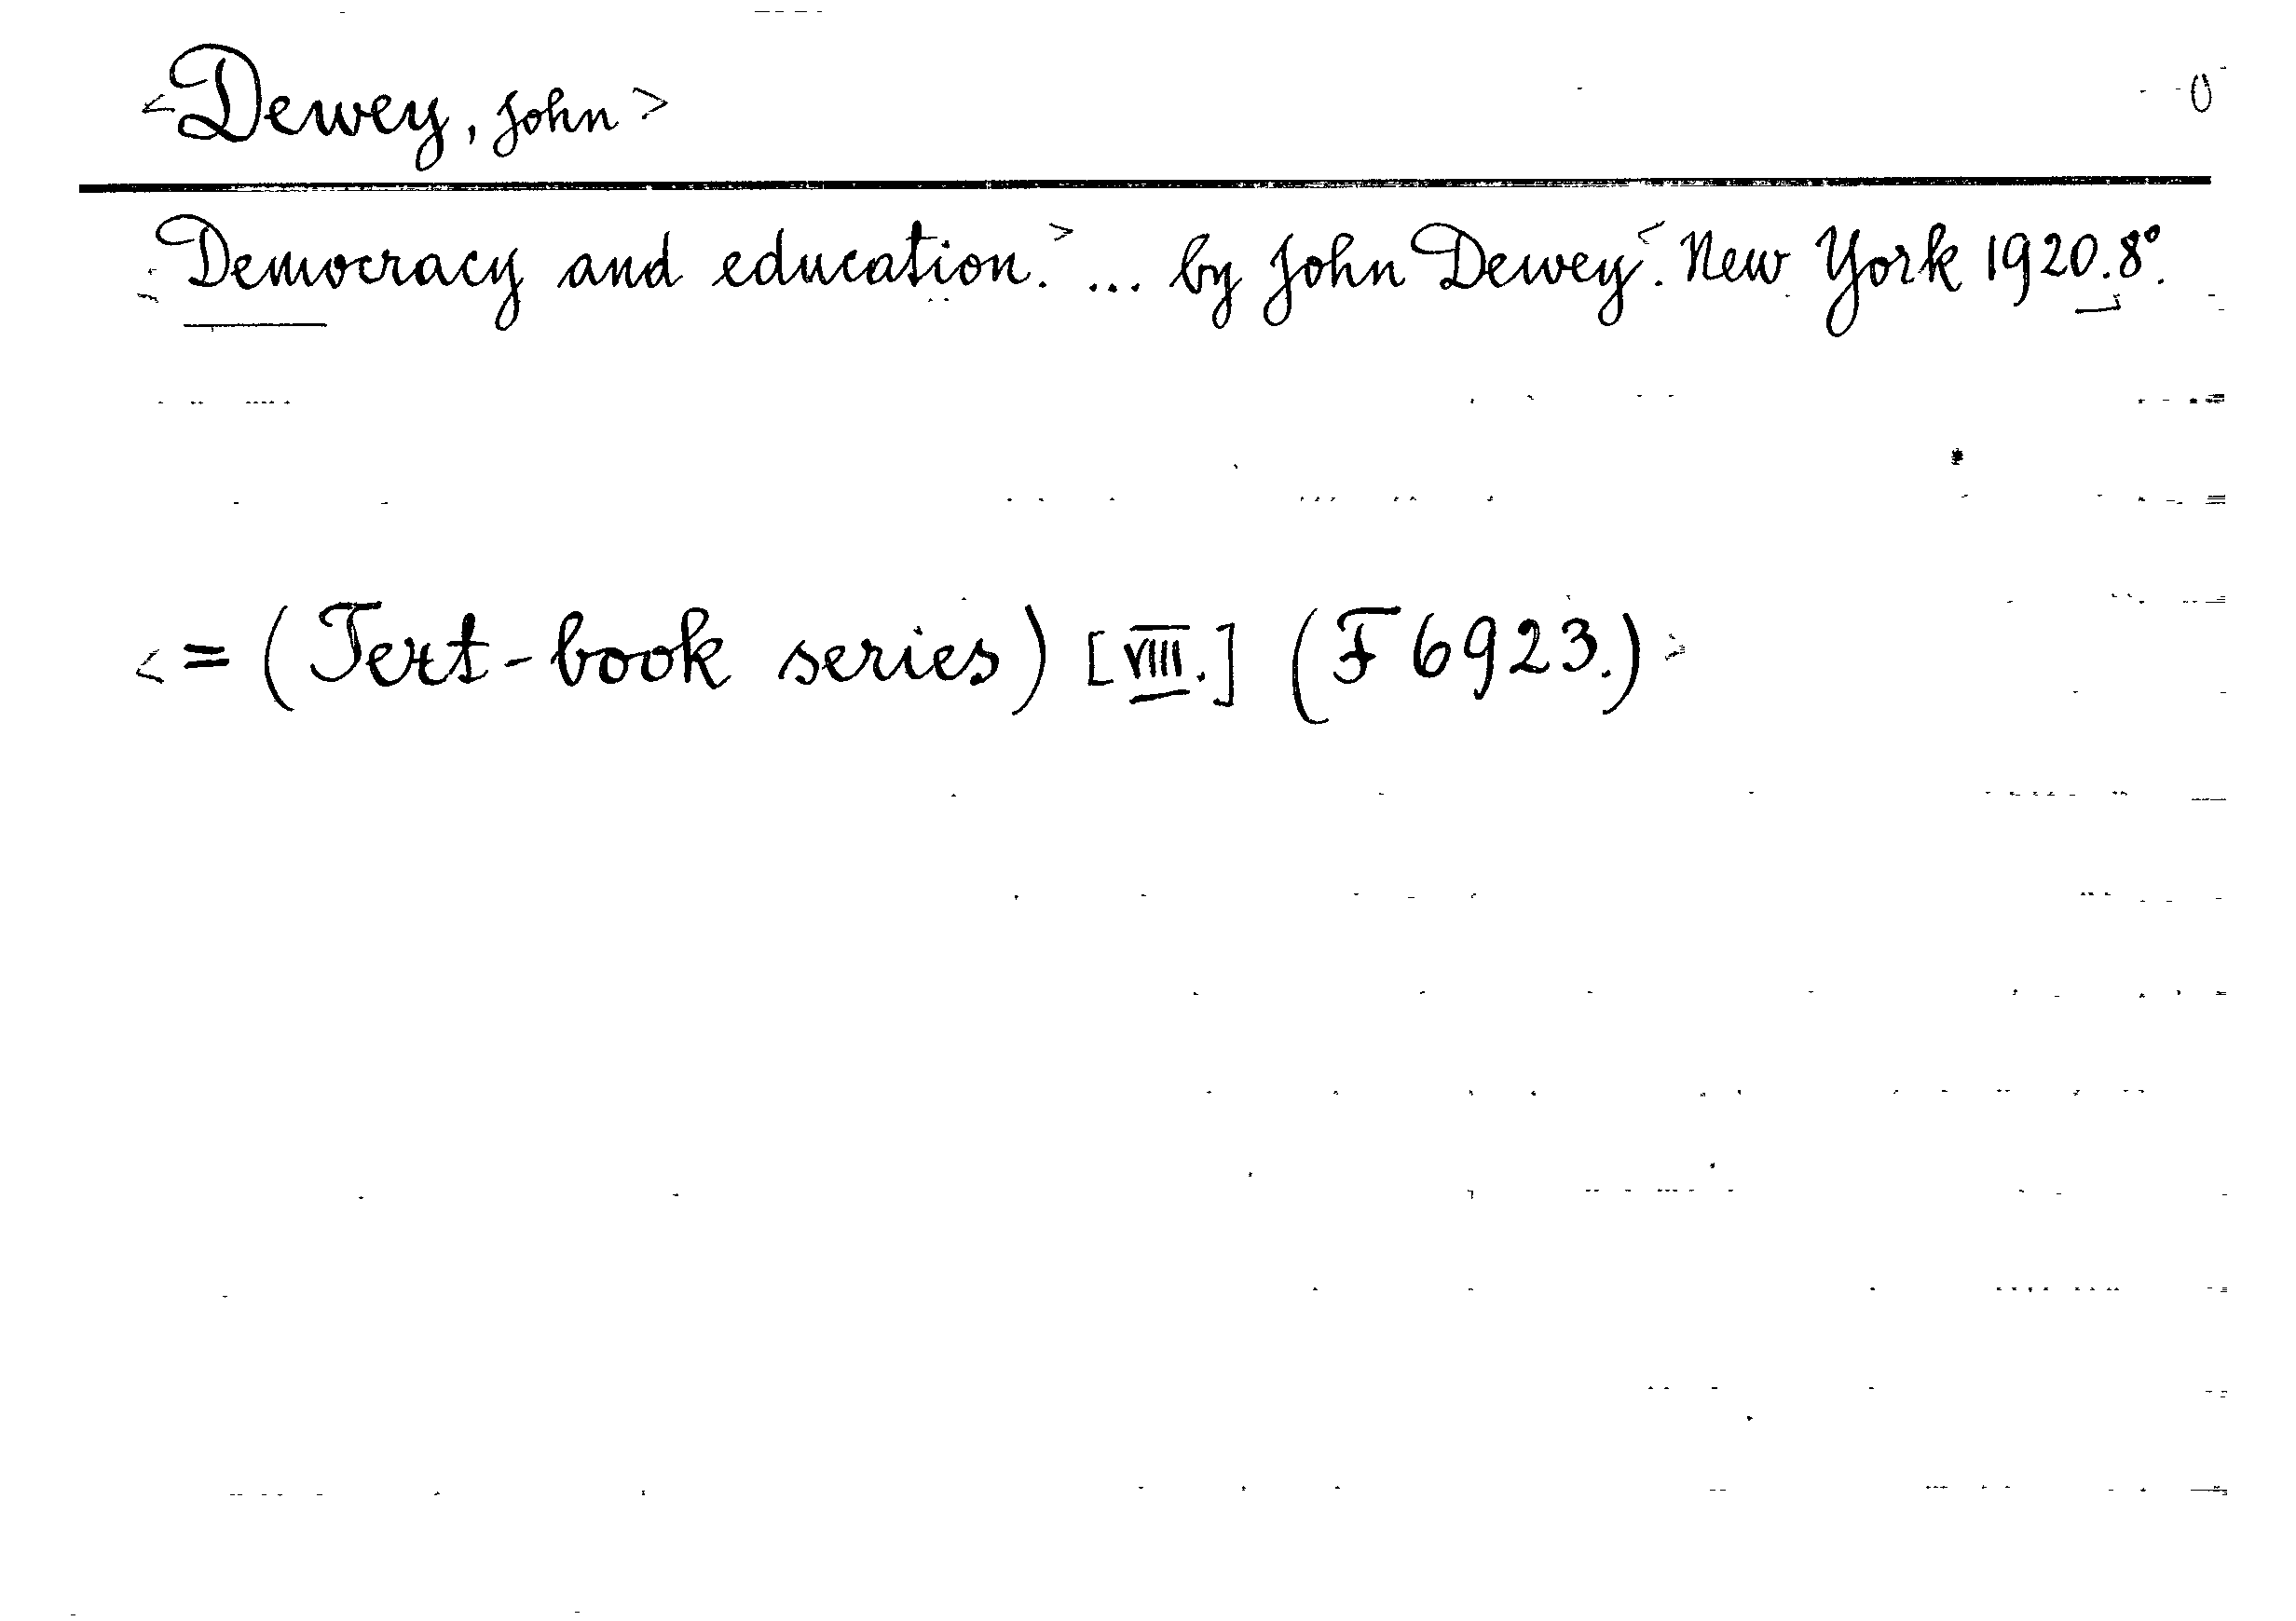 <Dewey, John> 0
Democracy and education.> ... by John Dewey<. New York 1920. 8°.
<= (Text-book series) [VIII.] (F 6923.)>